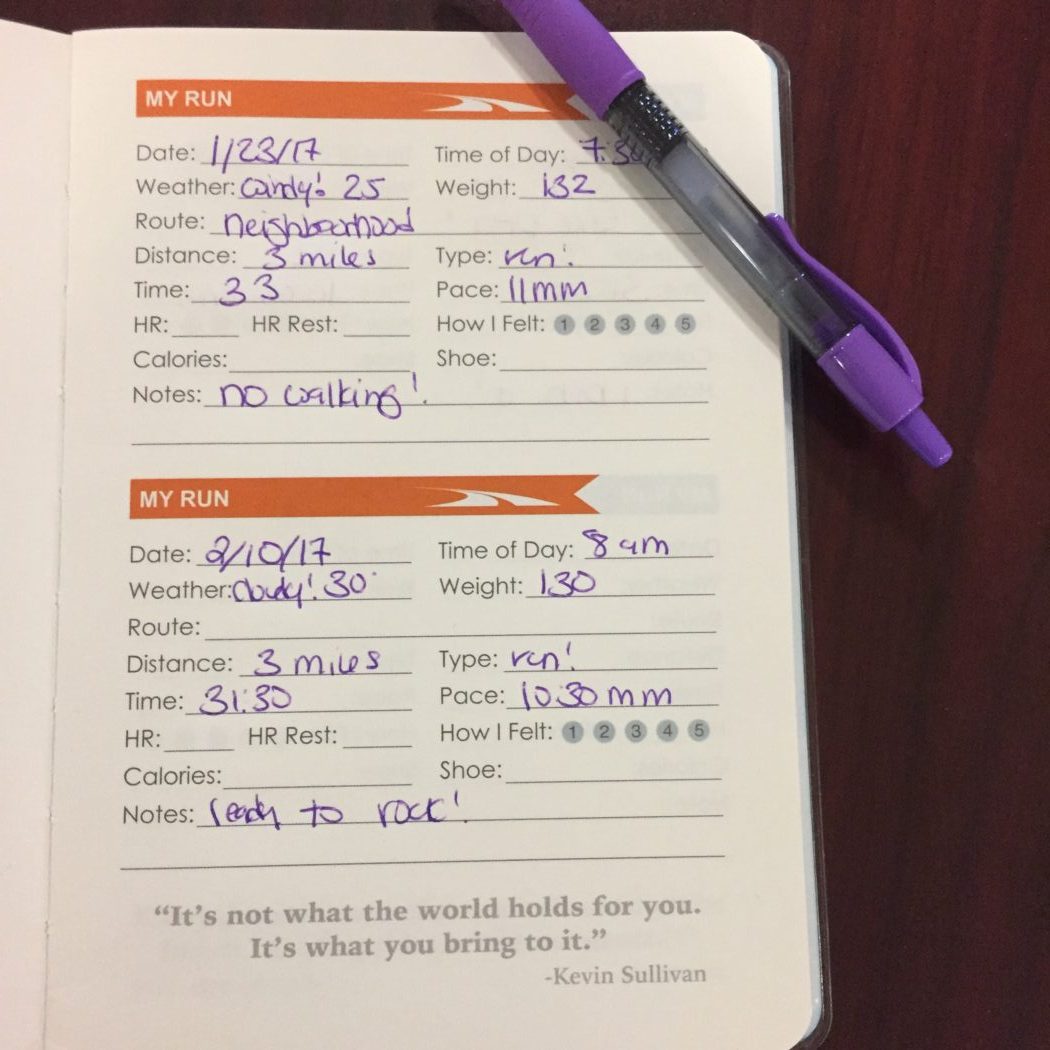 MY RUN
Date: 1/23/17 Time of Day: 7:30
Weather: windy! 25 Weight: 132
Route: neighbourhood
Distance: 3 miles Type: run!
Time: 33 Pace: 11mm
HR: HR Rest: How I Felt: 1 2 3 4 5
Calories: Shoe:
Notes: no walking!
MY RUN
Date: 2/10/17 Time of Day: 8 am
Weather: Cloudy! 30 Weight: 130
Route:
Distance: 3 miles Type: run!
Time: 31:30 Pace: 10:30 mm
HR: HR Rest: How I Felt: 1 2 3 4 5
Calories: Shoe:
Notes: ready to rock!
“It’s not what the world holds for you.
It’s what you bring to it.”
-Kevin Sullivan